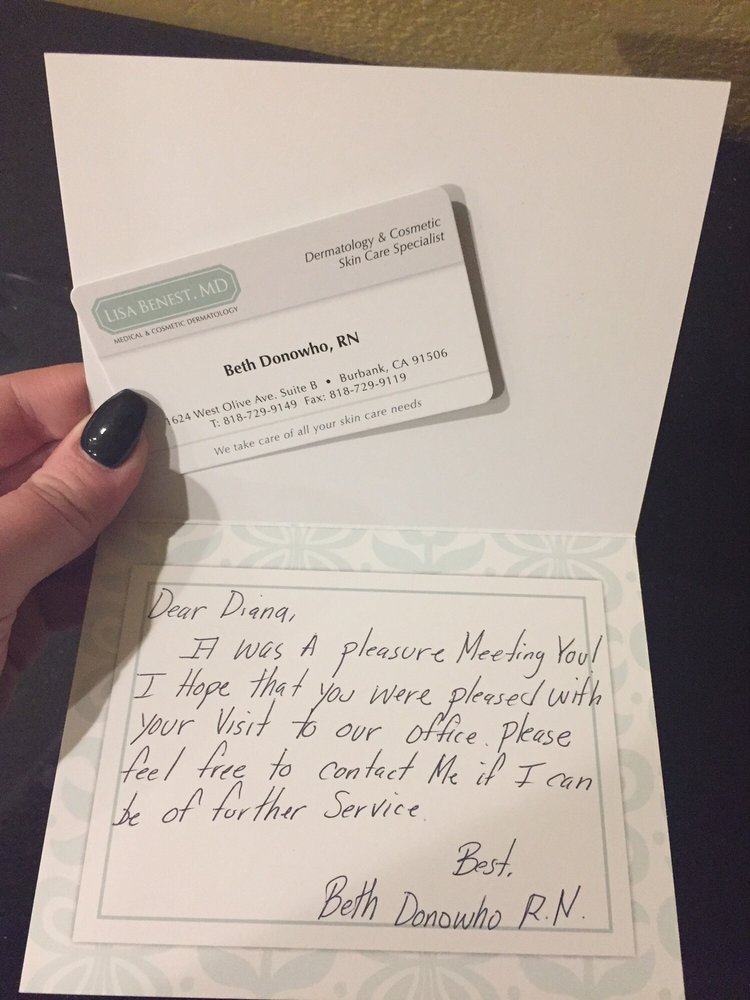 Dermatology & Cosmetic
Skin Care Specialist
LISA BENEST, MD
MEDICAL & COSMETIC DERMATOLOGY
Beth Donowho, RN
1624 West Olive Ave. Suite B • Burbank, CA 91506
T: 818-729-9149 Fax: 818-729-9119
We take care of all your skin care needs
Dear Diana,
It was A pleasure Meeting You!
I Hope that you were pleased with
your Visit to our office. Please
feel free to contact Me if I can
be of further Service.
Best,
Beth Donowho R.N.